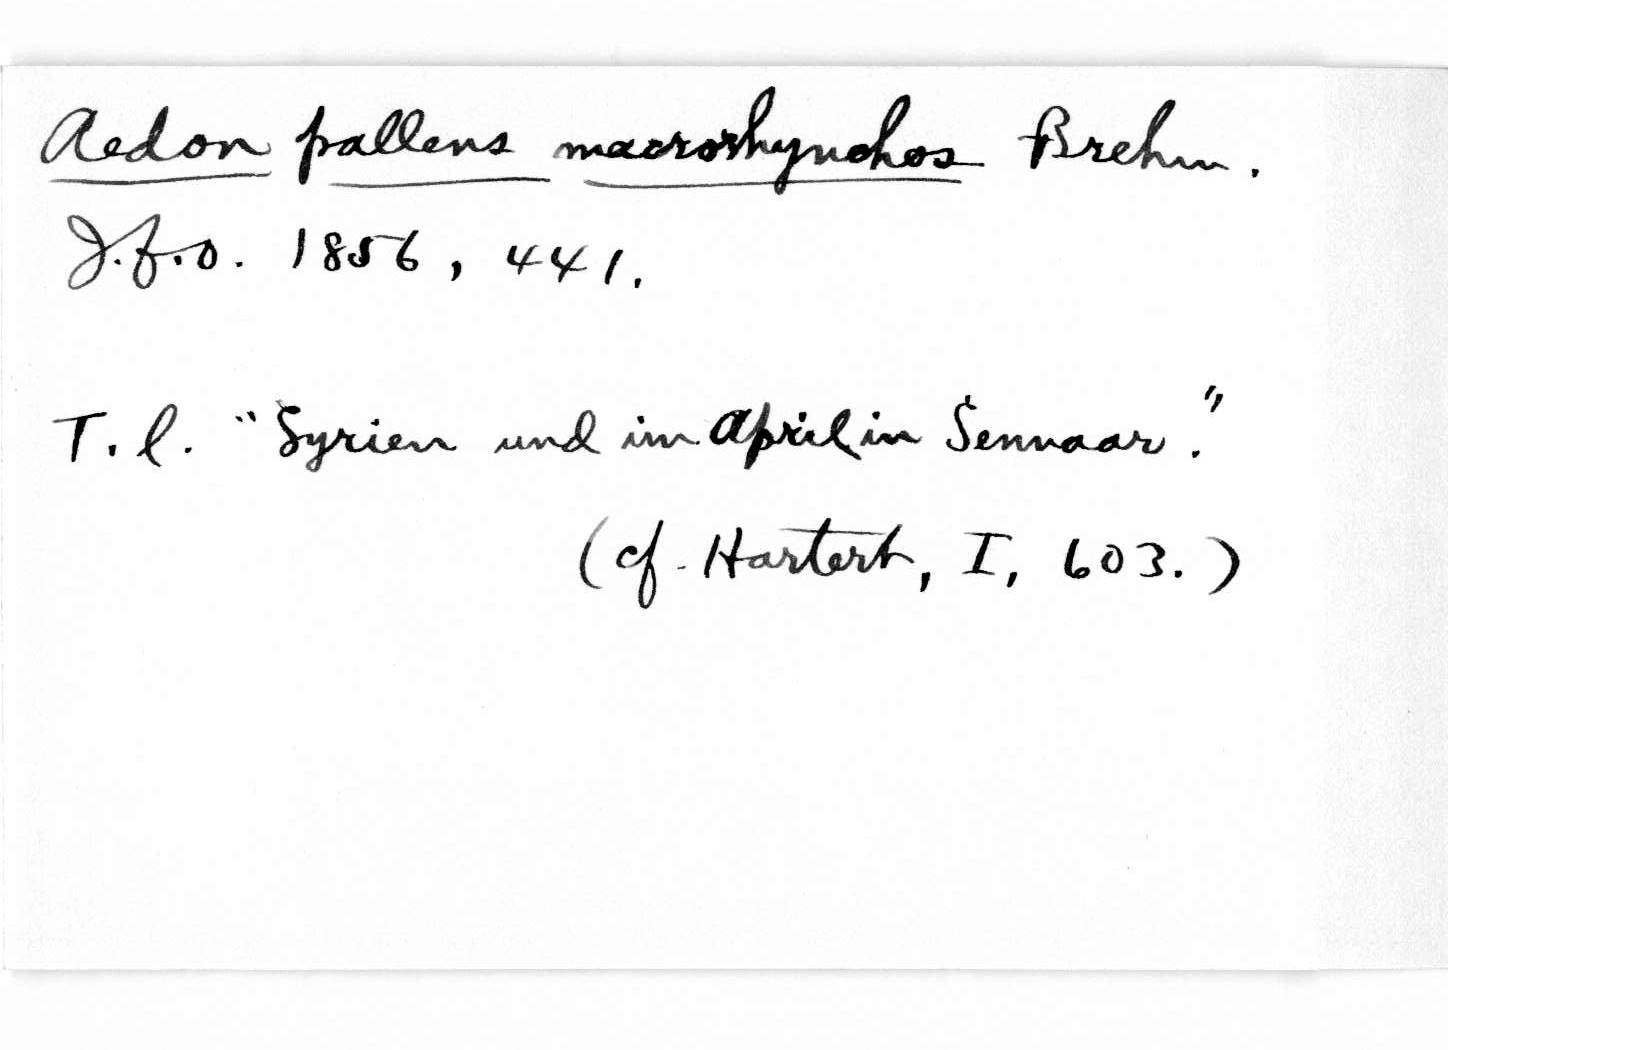 Aedon pallens macrorhynchos Brehm.
J.f.O. 1856, 441.
T. l. "Syrien und im April in Sennaar."
(cf. Hartert, I, 603.)